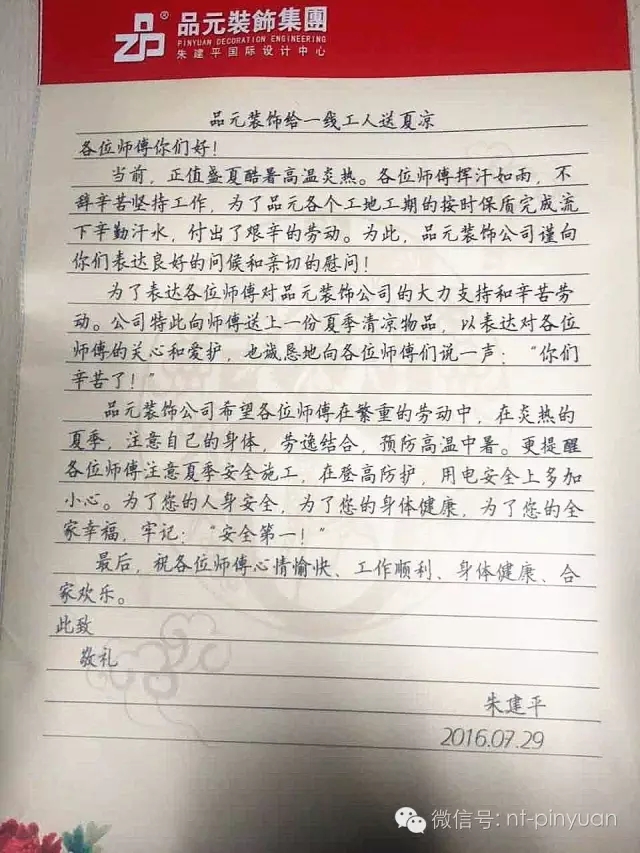 品元裝飾集團
PINYUAN DECORATION ENGINEERING
朱建平国际设计中心
品元装饰给一线工人送夏凉
各位师傅你们好！
当前，正值盛夏酷暑高温炎热。各位师傅挥汗如雨，不
辞辛苦坚持工作，为了品元各个工地工期的按时保质完成流
下辛勤汗水，付出了艰辛的劳动。为此，品元装饰公司谨向
你们表达良好的问候和亲切的慰问！
为了表达各位师傅对品元装饰公司的大力支持和辛苦劳
动。公司特此向师傅送上一份夏季清凉物品，以表达对各位
师傅的关心和爱护，也诚恳地向各位师傅们说一声：“你们
辛苦了！”
品元装饰公司希望各位师傅在繁重的劳动中，在炎热的
夏季，注意自己的身体，劳逸结合，预防高温中暑。更提醒
各位师傅注意夏季安全施工，在登高防护，用电安全上多加
小心。为了您的人身安全，为了您的身体健康，为了您的全
家幸福，牢记：“安全第一！”
最后，祝各位师傅心情愉快、工作顺利、身体健康、合
家欢乐。
此致
敬礼
朱建平
2016.07.29
微信号: nt-pinyuan